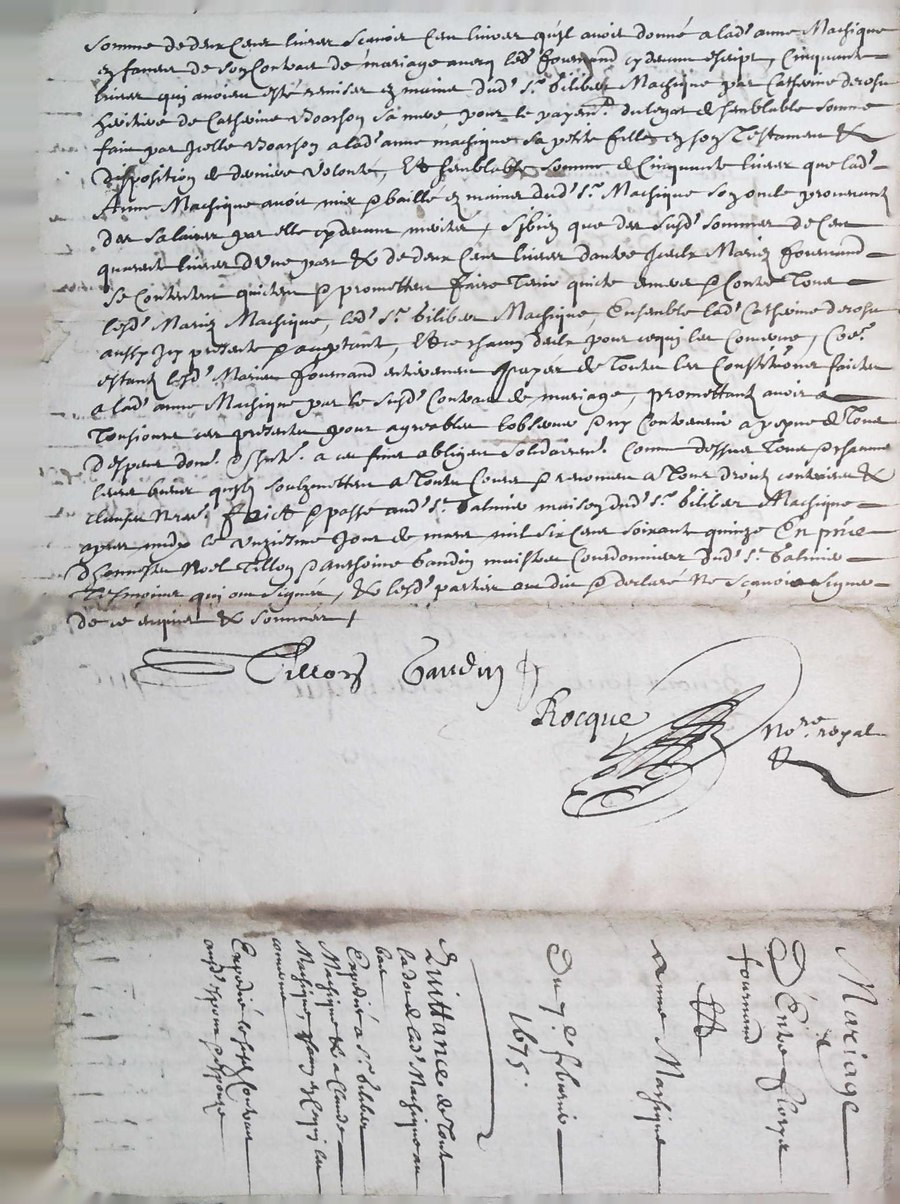 somme de deux cens livres scavoir cens livres qu'il avoit donné a lad' anne Machique
en faveur de son contract de mariage avecq led' fournand cydevant escript, Cinquante
livres qui avoient esté remises es mains dud' sr bilibert Machique par Catherine derosu
heritiere de Catherine Boarson sa mere pour le payemt du legat de semblable somme
faict par Icelle Boarson a lad' anne machique sa petite fille en son Testament &
disposition de derniere volonté, Et semblable somme de Cinquante livres que lad'
Anne Machique avoit mis & baillé es maines dud' sr Machique son oncle provenant
des salaires par elle cydevant merités, Sybien que des susd' sommes de cens
quarante livres d'Une part & de deux cens livres dautre Iceulx Mariez fournand
se contentent quictent & promettent faire Tenir quicte envers & contre Tous
lesd' Mariez Machique, led' sr bilibert Machique, Ensemble lad' Catherine derosu
aussy Icy presente & acceptant, Et chascun deulx pour ce qui les concerne,
estant lesd' Mariez fournand entierement payez de Toutes les Constitutions faictes
a lad' anne Machique par le susd' Contract de mariage, promettant avoir a
Tousjours ces presentes pour agreables a peyne de Tous
despens dom' a ces fins obligent solidairemt comme dessus Tous & chascuns
leurs biens qu'ils soubzmettent a Toutes Cours & renoncent a Tous droicts contraires &
clauses Faict & passé aud' st Galmier maison dud' sr bilibert Machique
apres midy le unziesme Jour de mars mil six cens soixante quinze En pnce
d'honnestes Noël Tillon & anthoine Gaudin maistres Courdonniers dud' st Galmier
Tesmoins qui ont signez, & lesd' parties ont dit & declaré Ne sçavoir signer
de ce enquis & sommés /
Tillon Gaudin
Rocque Nore royal
Mariage
D'Entre
fournand
&
anne Machique
Du 7e febvrier
1675.
Quittance de Tout
la dot de lad' Machique au
bas
Expedié a sr bilibert
Machique & a Claude
Machique en ce qui les
concerne
Expedié le susd' contract
ausd' espoux & espouze